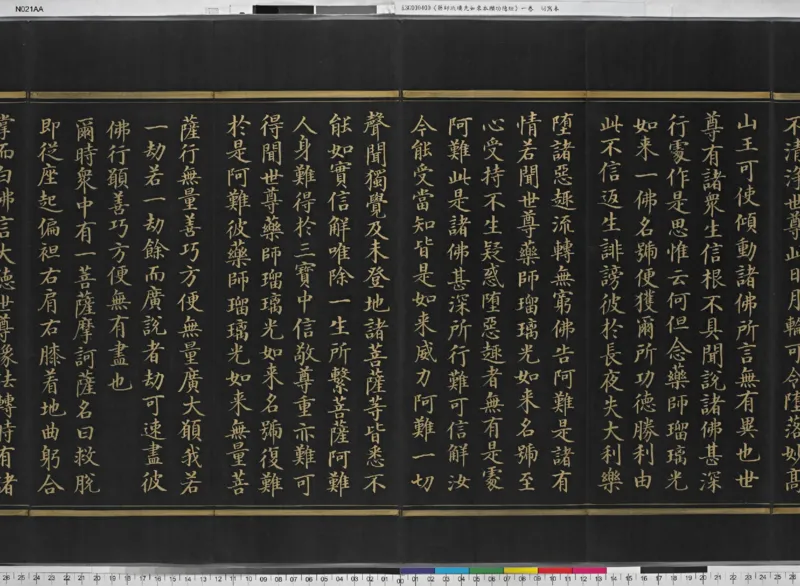 N021AA
不清淨世尊此日月輪可令墮落妙高
山王可使傾動諸佛所言無有異也世
尊有諸衆生信根不具聞說諸佛甚深
行處作是思惟云何但念藥師瑠璃光
如来一佛名號便獲爾所功德勝利由
此不信返生誹謗彼於長夜失大利樂
墮諸惡趣流轉無窮佛告阿難是諸有
情若聞世尊藥師瑠璃光如来名號至
心受持不生疑惑墮惡趣者無有是處
阿難此是諸佛甚深所行難可信解汝
今能受當知皆是如来威力阿難一切
聲聞獨覺及未登地諸菩薩等皆悉不
能如實信解唯除一生所繫菩薩阿難
人身難得於三寶中信敬尊重亦難可
得聞世尊藥師瑠璃光如来名號復難
於是阿難彼藥師瑠璃光如来無量菩
薩行無量善巧方便無量廣大願我若
一劫若一劫餘而廣說者劫可速盡彼
佛行願善巧方便無有盡也
爾時衆中有一菩薩摩訶薩名曰救脫
即從座起偏袒右肩右膝着地曲躬合
掌而白佛言大德世尊像法轉時有諸